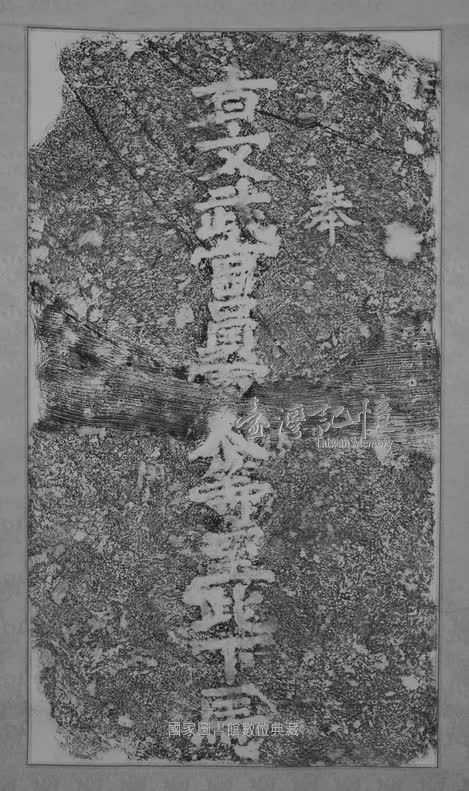 奉
旨文武官員人等至此下馬
臺灣記憶
Taiwan Memory
國家圖書館數位典藏